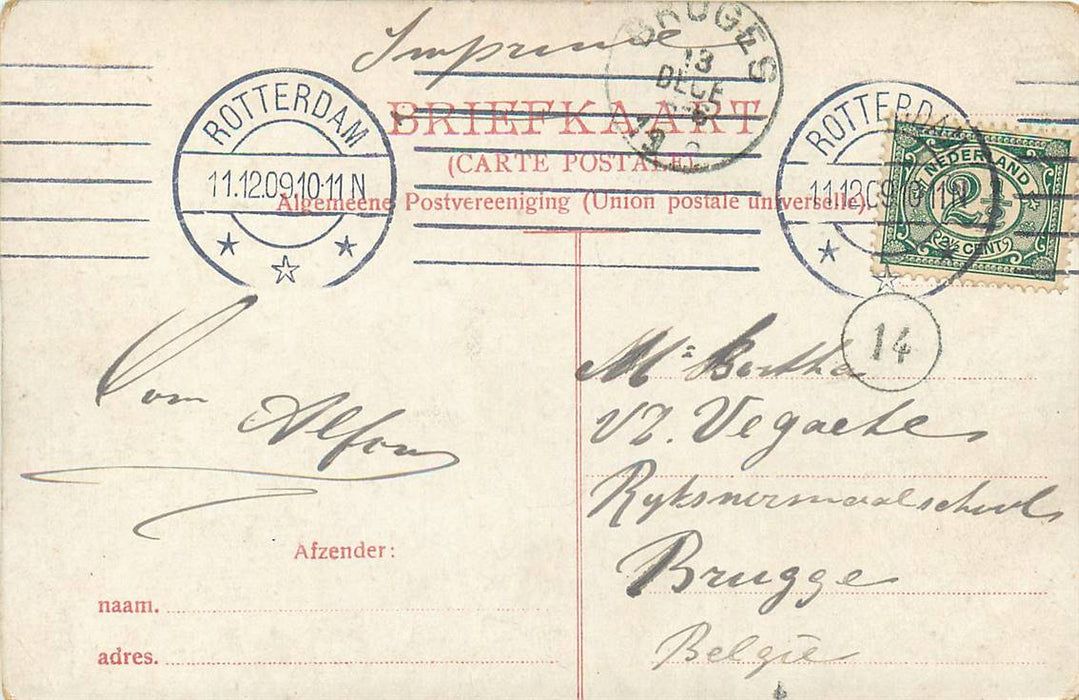 Imprimé
BRUGES
13
DECE
19
BRIEFKAART
(CARTE POSTALE).
Algemeene Postvereeniging (Union postale universelle).
ROTTERDAM
11.12.09.10-11 N
ROTTERDAM
11.12.09.10-11N
NEDERLAND
2½
2½ CENT
14
Oom
Alfons
Afzender:
naam.
adres.
Mr Bertha
Vegaete
Ryksnormaalschool
Brugge
België